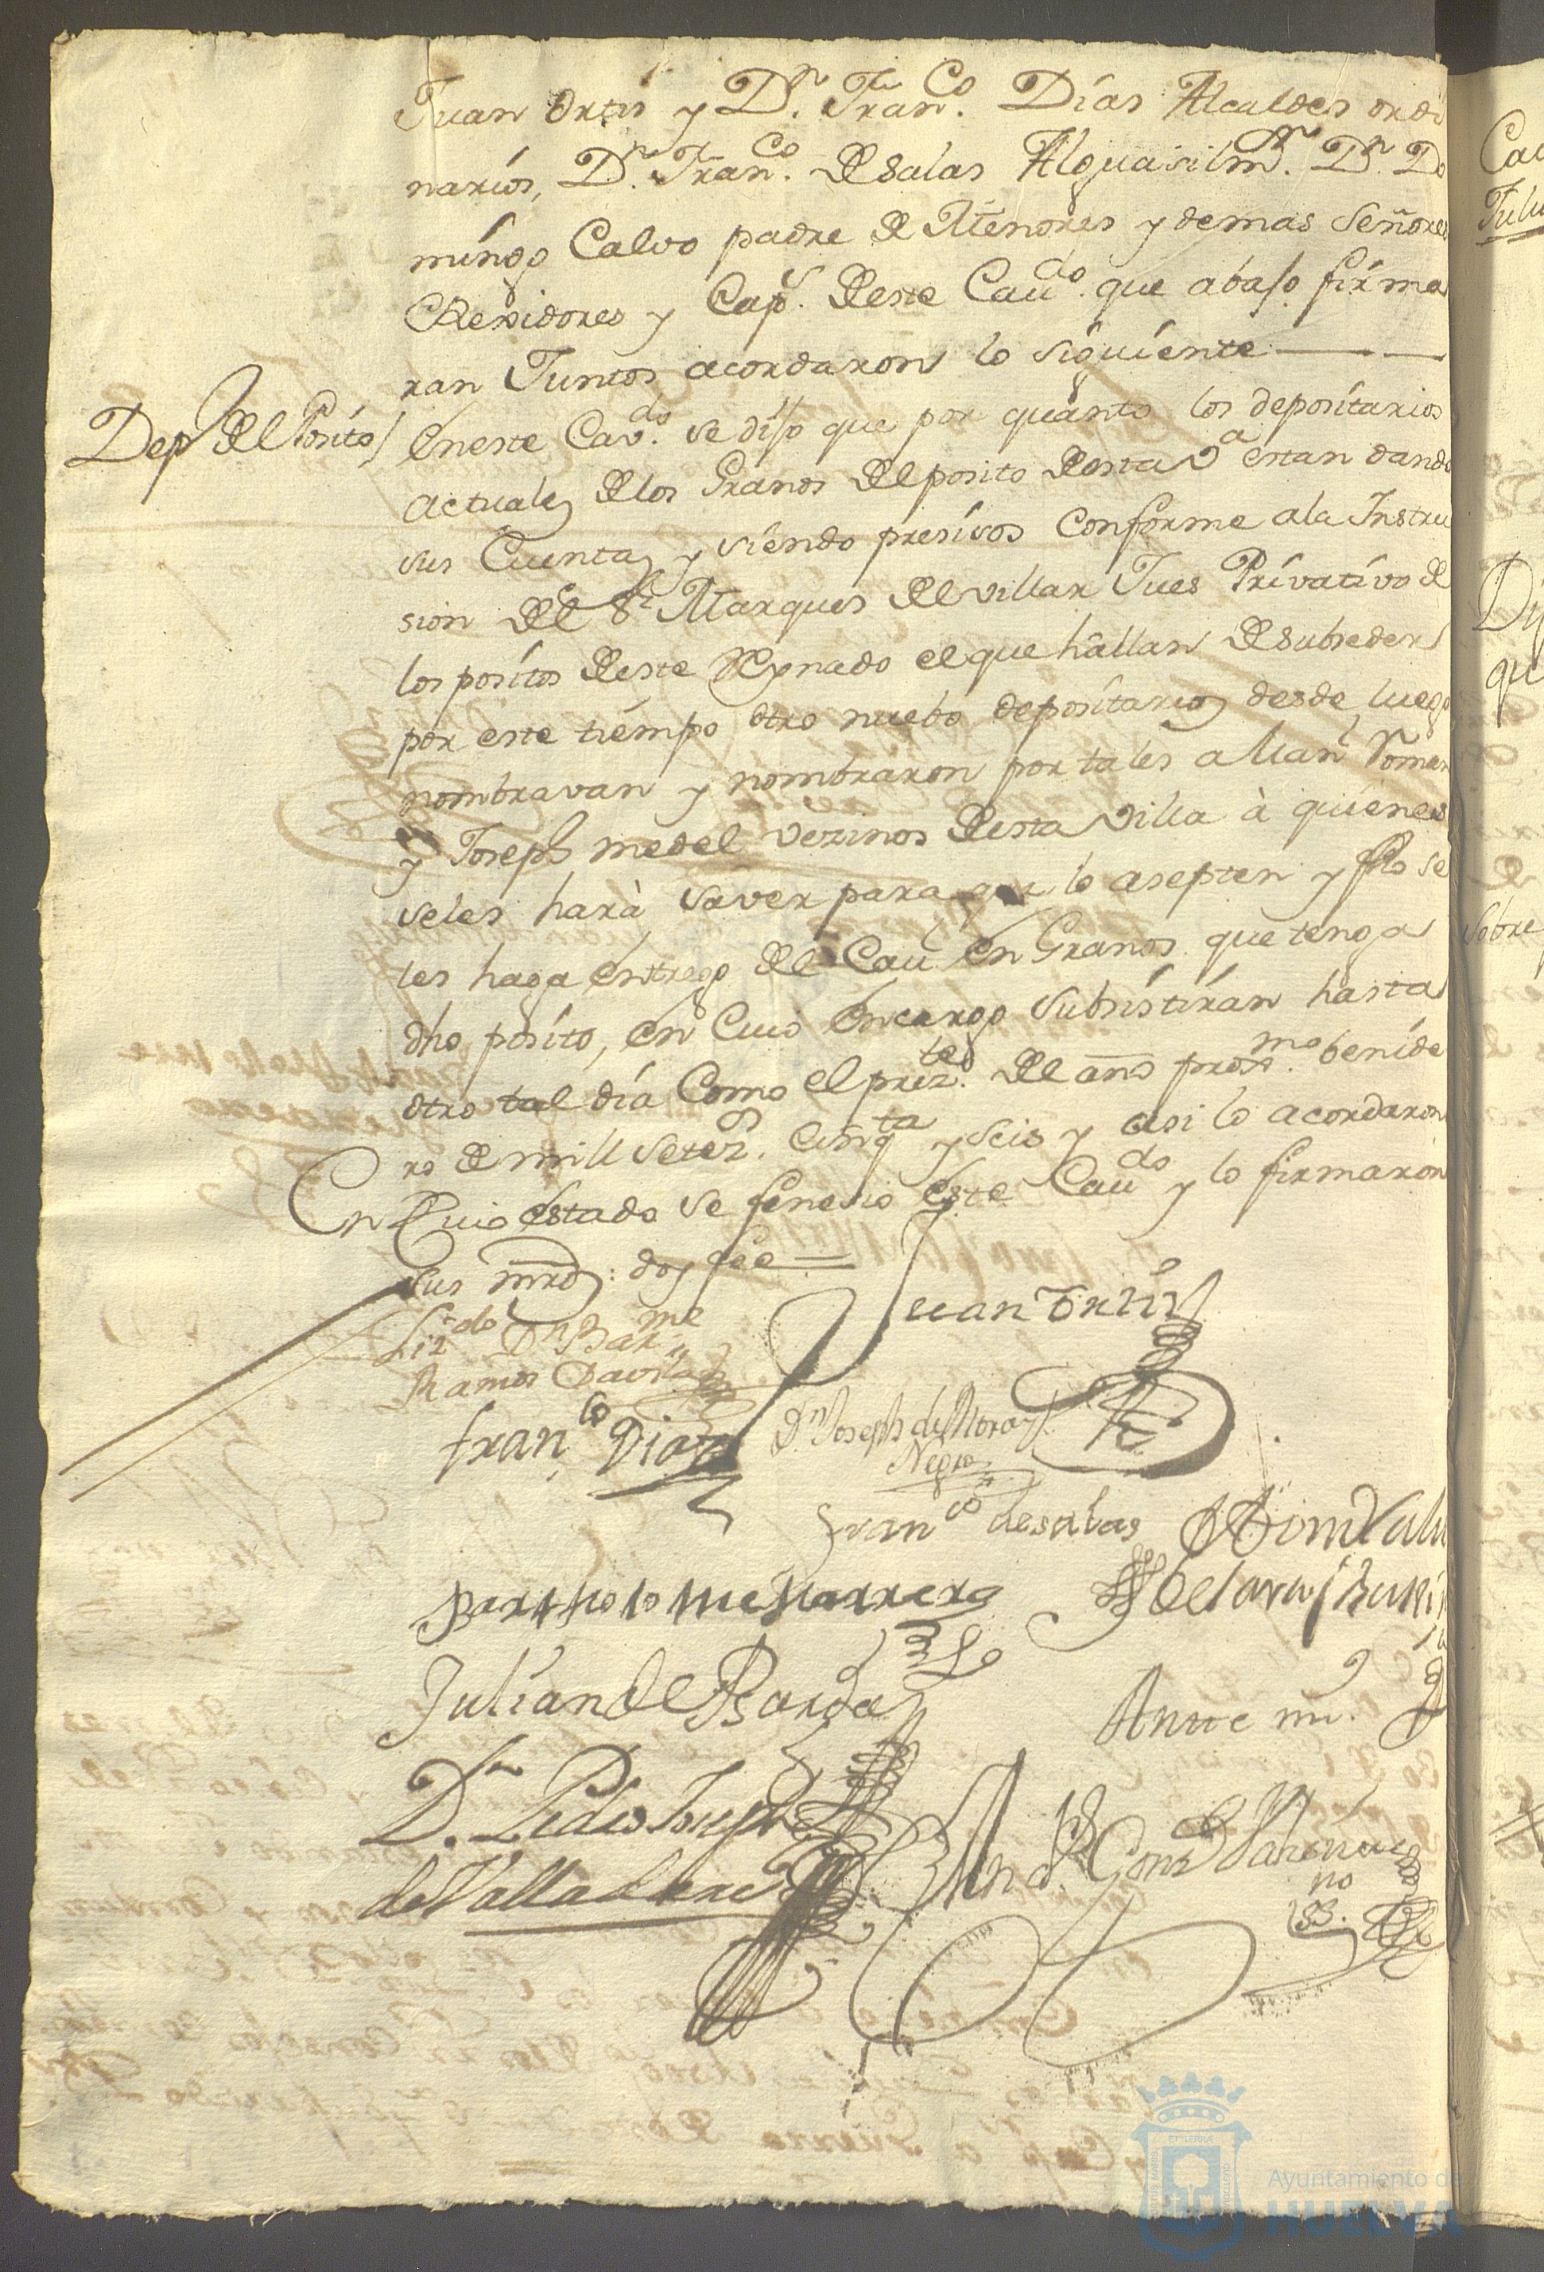 Juan Ortis y Dn. Franco. Días Alcaldes ordi
narios, Dn. Franco. de Salas Alguasil mr. Dn. Do
míngo Calvo padre de Menores y demas Señores
Rexidores y Cap.s deste Caudo. que abajo firma
ran Juntos acordaron lo siguiente
Dep.s del Posito
En este Cavdo. se dijo que por quanto los depositarios
actuales de los Granos del posito desta Va estan dando
sus Cuentas y siendo presisos Conforme a la Instru
sion del Sr. Marques del villar Jues Privativo de
los positos deste Reynado el que hallan de subseder
por este tiempo otro nuebo depositarios desde luego
nombravan y nombraron por tales a Manl Roman
y Joseph medel vezinos desta Villa à quienes
se les harà saver para que lo asepten y fho se
les haga entrego del Caul en Granos que tenga
dho posito, en Cuio encargo subsistirán hasta
otro tal día Como el prezte. del año proxmo. benide
ro de mill setezs. cinqta y seis y asi lo acordaron
En Cuio estado se fenesio este Caudo y lo firmaron
sus mrds: doy fee
Lizdo Dn Barme
Ramos Davila
Juan Ortiz
Franco Diaz
Dn Joseph de Mora y
Negro
Franco de salas
Bartholome Marrero
Julian de Borda
Ante mi.
Dn. Pedro Joseph
de Valladares
Gonz
no
SS.
Cau
Sobre
que
Ayuntamiento de
HUELVA